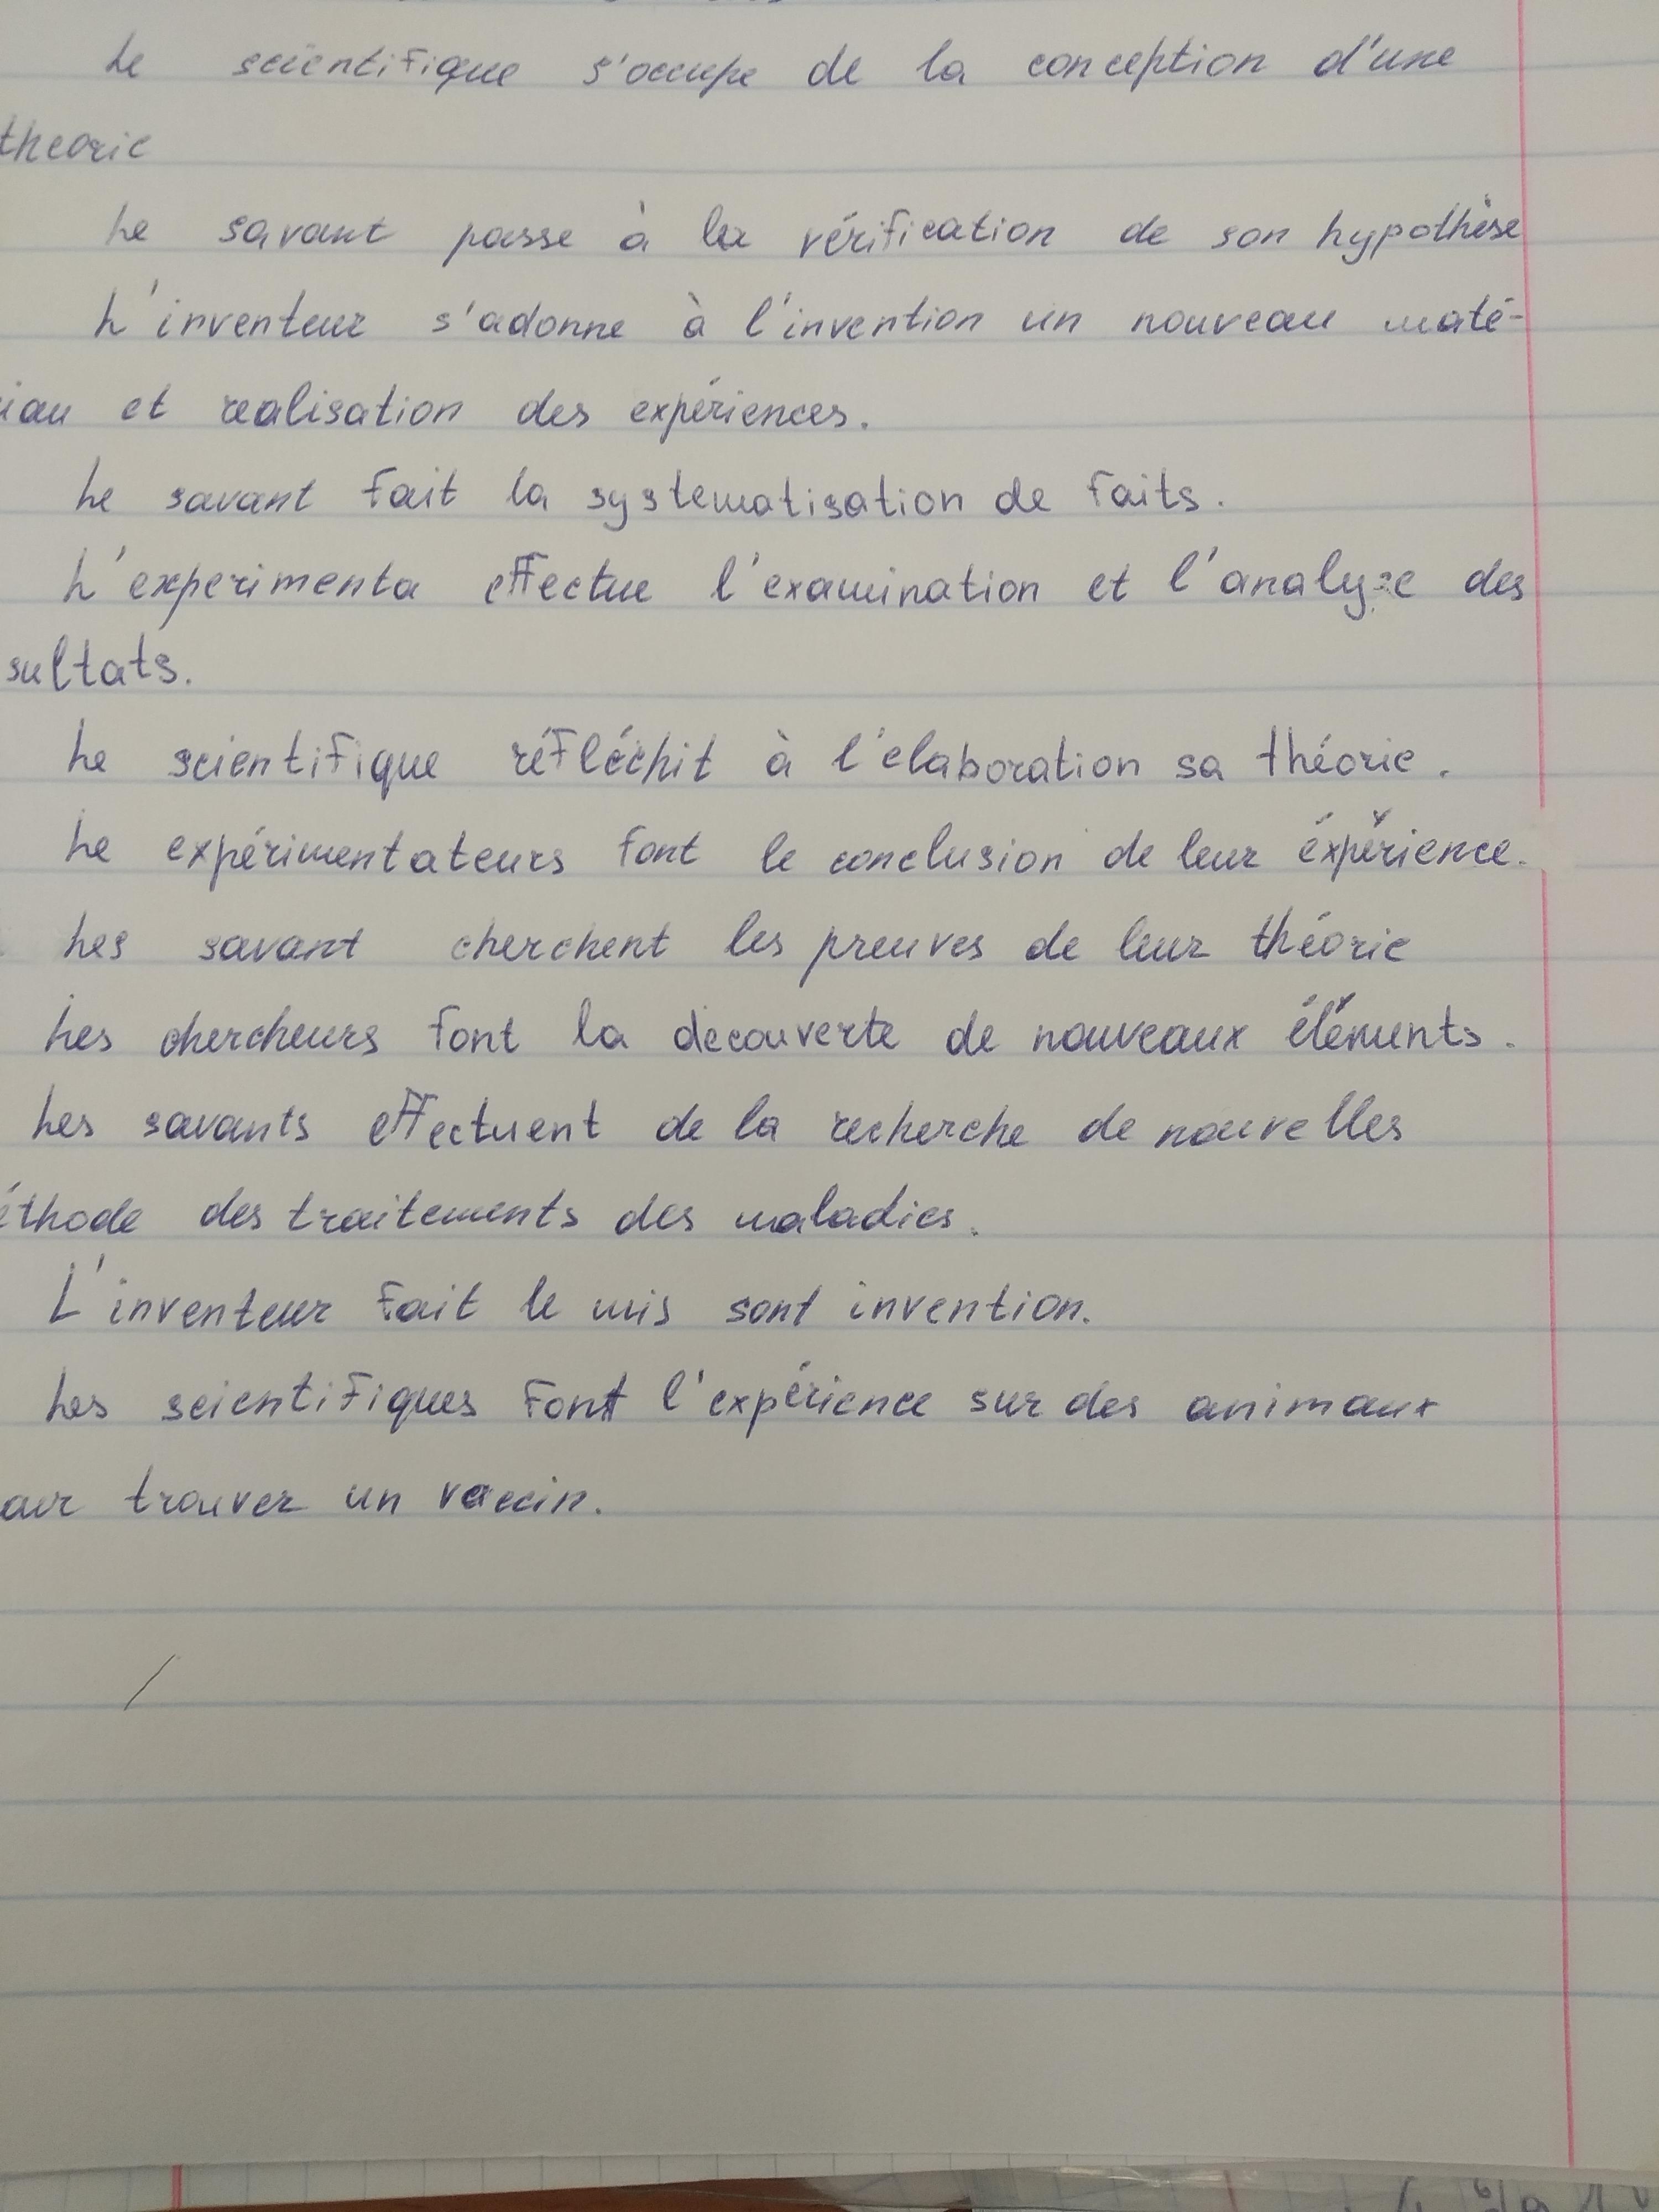 Le scientifique s'occupe de la conception d'une
theorie
Le savant passe à la vérification de son hypothèse
L'inventeur s'adonne à l'invention un nouveau maté-
iau et realisation des expériences.
Le savant fait la systematisation de faits.
L'experimenta effectue l'examination et l'analyse des
sultats.
Le scientifique réfléchit à l'elaboration sa théorie.
Le expérimentateurs font le conclusion de leur éxpérience.
Les savant cherchent les preuves de leur théorie
Les chercheurs font la decouverte de nouveaux éléments.
Les savants effectuent de la recherche de nouvelles
éthode des traitements des maladies.
L'inventeur fait le mis sont invention.
Les scientifiques font l'expérience sur des animaux
our trouver un vaccin.